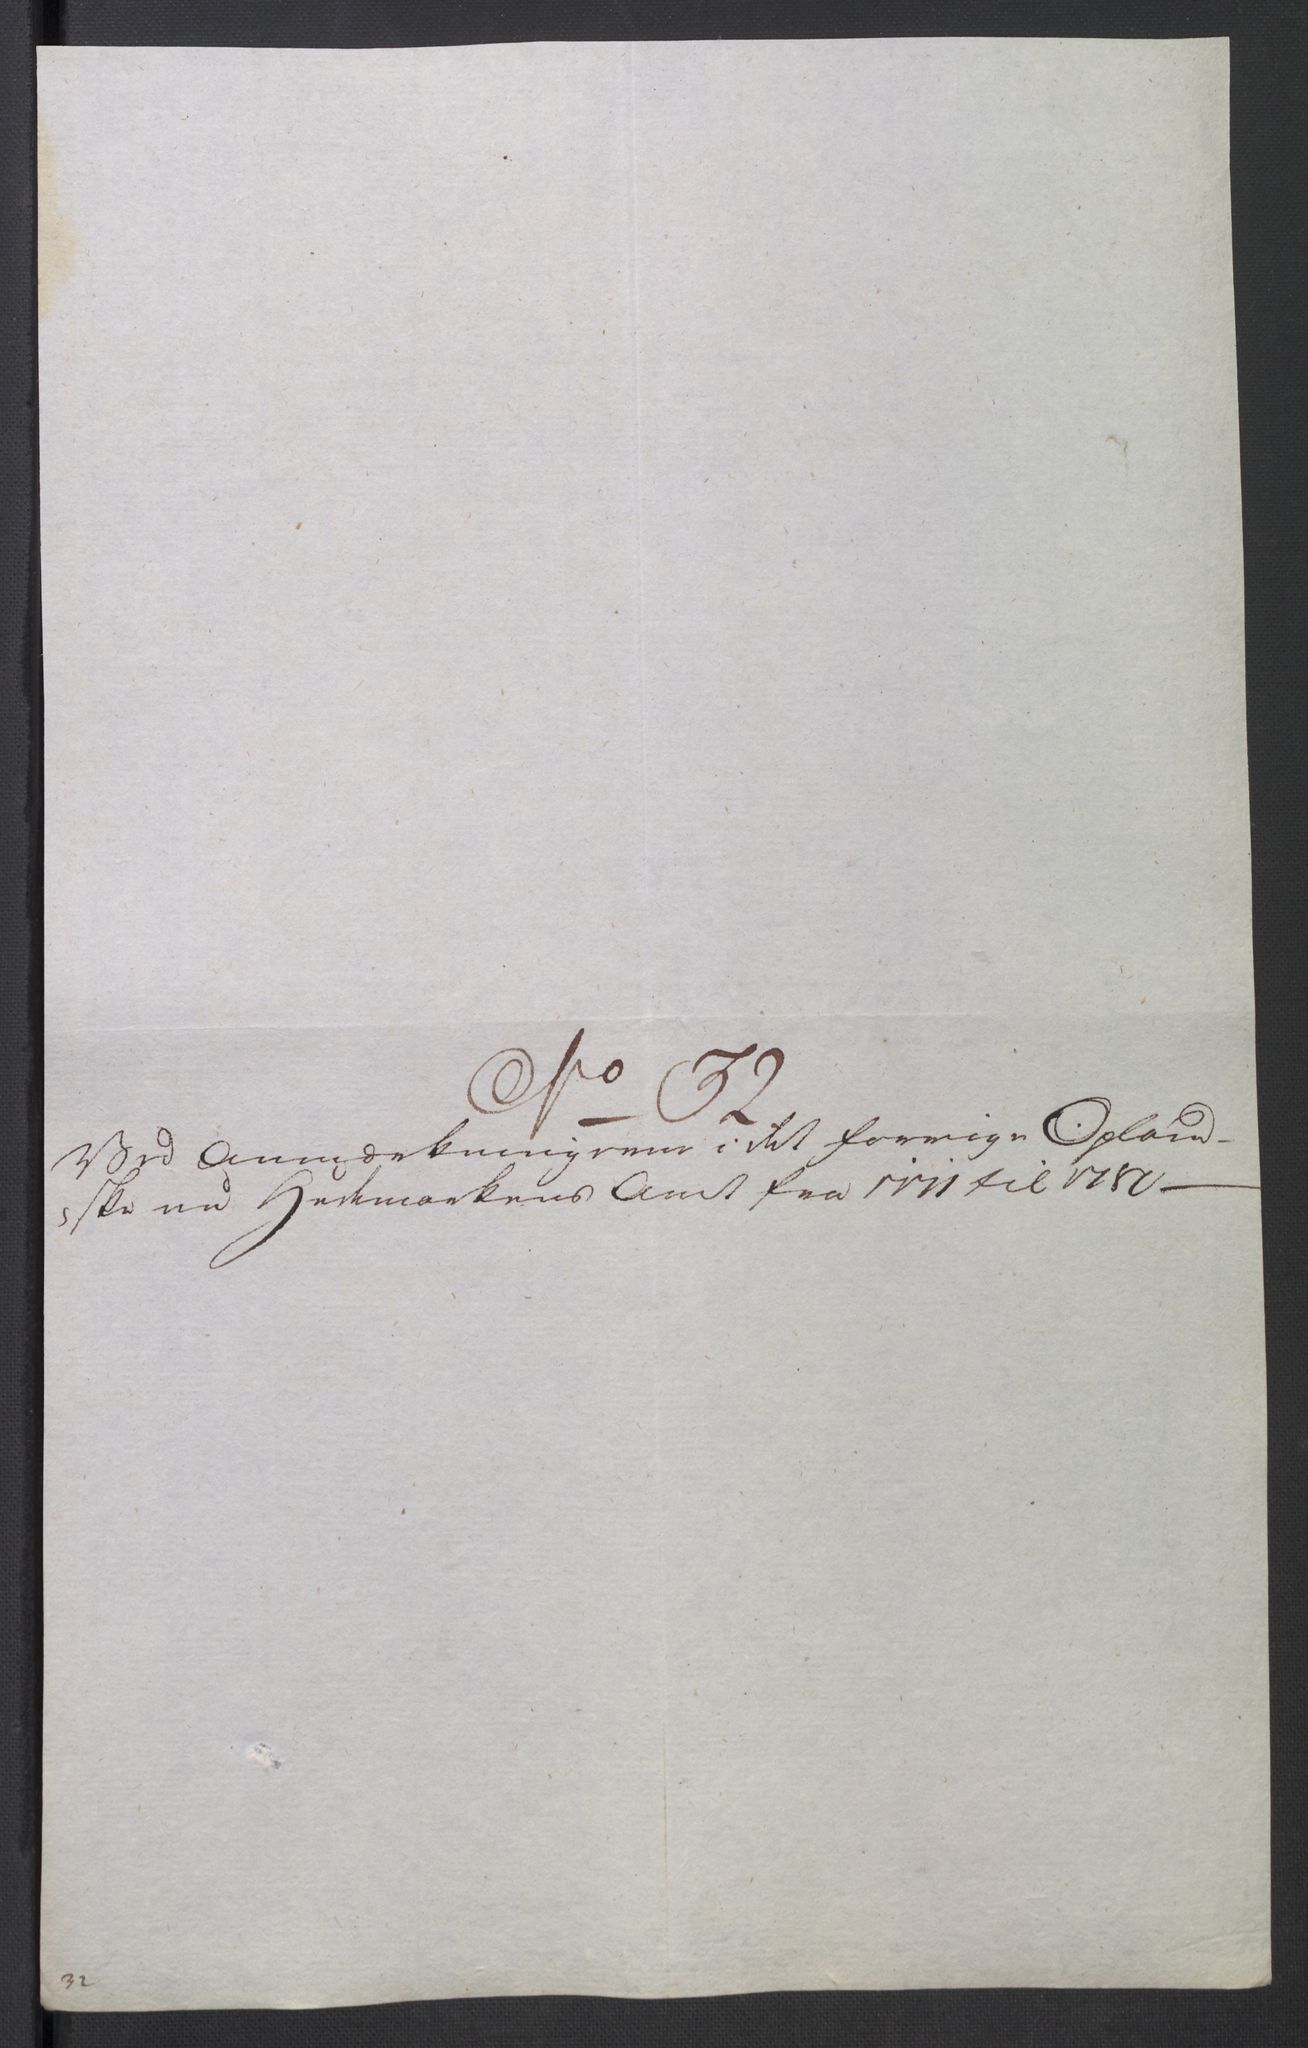 No 32
Ved Anmærkningerne i det forrige Opland-
ske nu Hedemarkens Amt fra 1771 til 1787
32